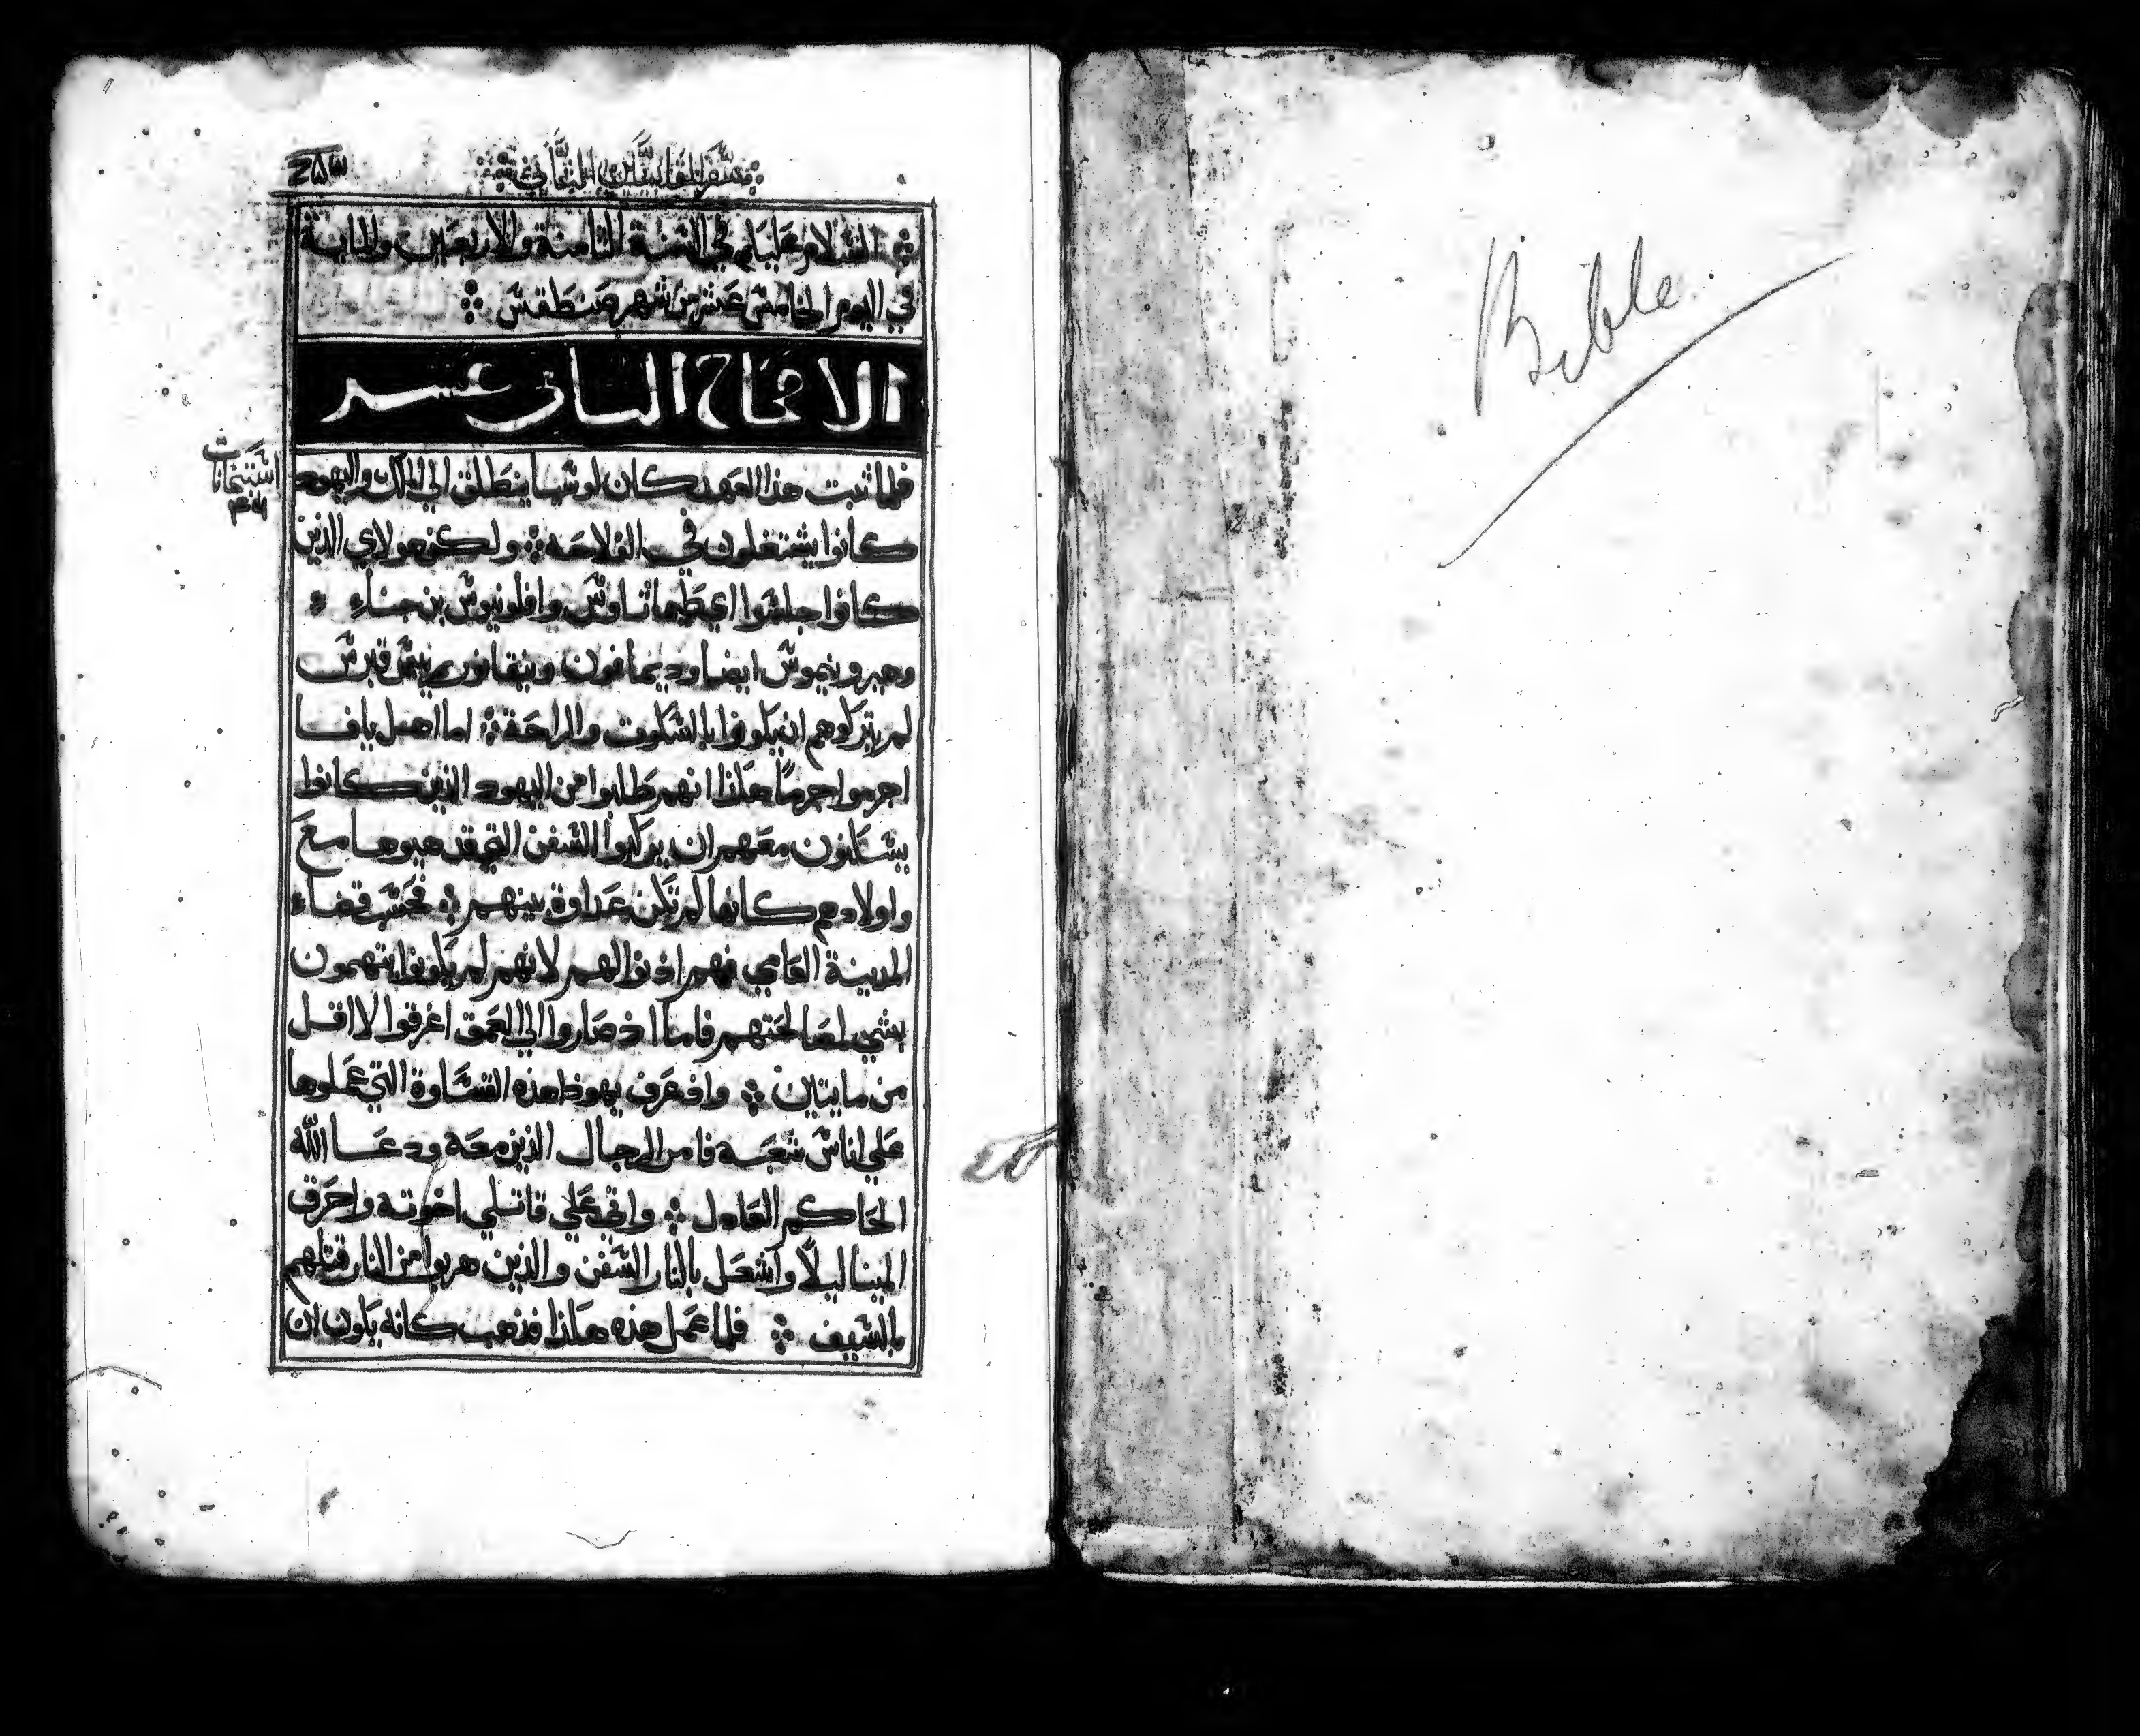 سفر المقابيين الثاني
٢٥٣
السلام عليكم في السنة الثامنة والاربعين والماية
في اليوم الخامس عشر من شهر صنطقس
الاصحاح الثاني عشر
فلما ثبت هذا العهد كان لوشيا ينطلق الي الملك واليهود
كانوا يشتغلون في الفلاحه ولكن هولاي الذين
كانوا جلسوا اي طيماثاوس وافلونيوس بن جناء
وهيرونيموس ايضا وديمافون ونيقانور ريس قبرس
لم يتركوهم ان يكونوا بالسكوت والراحة اما اهل يافا
اجرموا جرمًا هكذا انهم طلبوا من اليهود الذين كانوا
يسكنون معهم ان يركبوا السفن التي قد هيوها مع
واولادهم كانها لم تكن عداوة بينهم فحسب قضاء
المدينة العامي فهم اذنوا لهم لانهم لم يكونوا يتهمون
بشي لمصالحتهم فاما اذ صاروا الي العمق اغرقوا لا اقل
من مايتين واذ عرف يهوذا هذه القساوة التي عملوها
علي اناس شعبه فامر الرجال الذين معه ودعا الله
الحاكم العادل واتي علي قاتلي اخوته واحرق
المينا ليلاً واشعل بالنار السفن والذين هربوا من النار قتلهم
بالسيف فلما عمل هذه هكذا فذهب كانه يكون ان
Bible